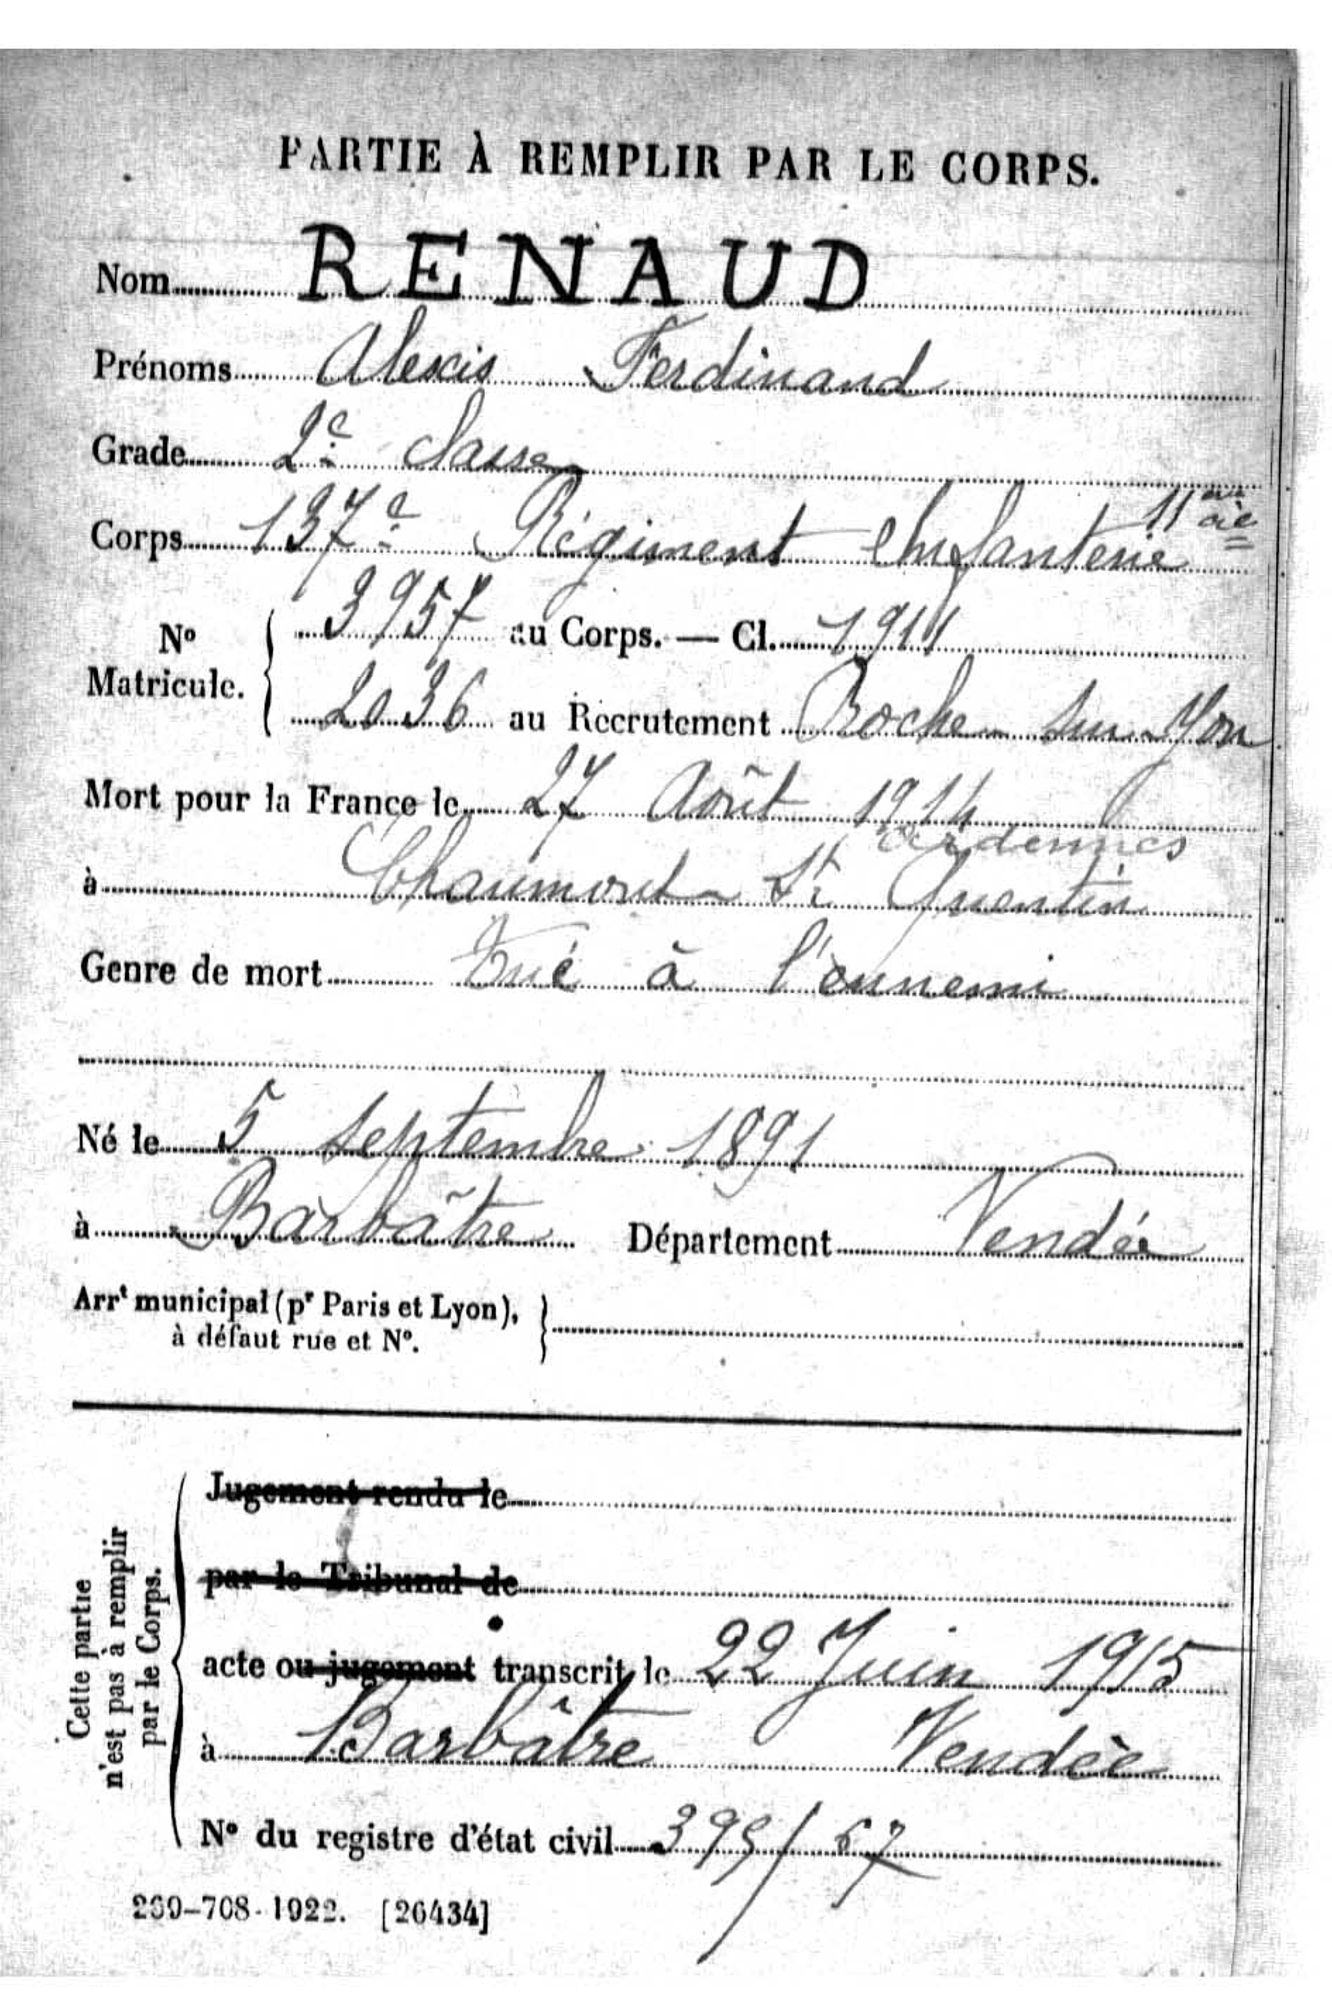 PARTIE À REMPLIR PAR LE CORPS.
Nom RENAUD
Prénoms Alexis Ferdinand
Grade 2e classe
11eme cie
Corps 137e Régiment Infanterie
No Matricule. 3957 au Corps. — Cl. 1911
2036 au Recrutement Roche sur Yon
Mort pour la France le 27 Août 1914
Ardennes
à Chaumont St Quentin
Genre de mort Tué à l'ennemi
Né le 5 Septembre 1891
à Barbâtre Département Vendée
Arrt municipal (pr Paris et Lyon),
à défaut rue et No.
Cette partie
n'est pas à remplir
par le Corps.
Jugement rendu le
par le Tribunal de
acte ou jugement transcrit le 22 Juin 1915
à Barbâtre Vendée
No du registre d'état civil 399/67
269-708-1922. [26434]